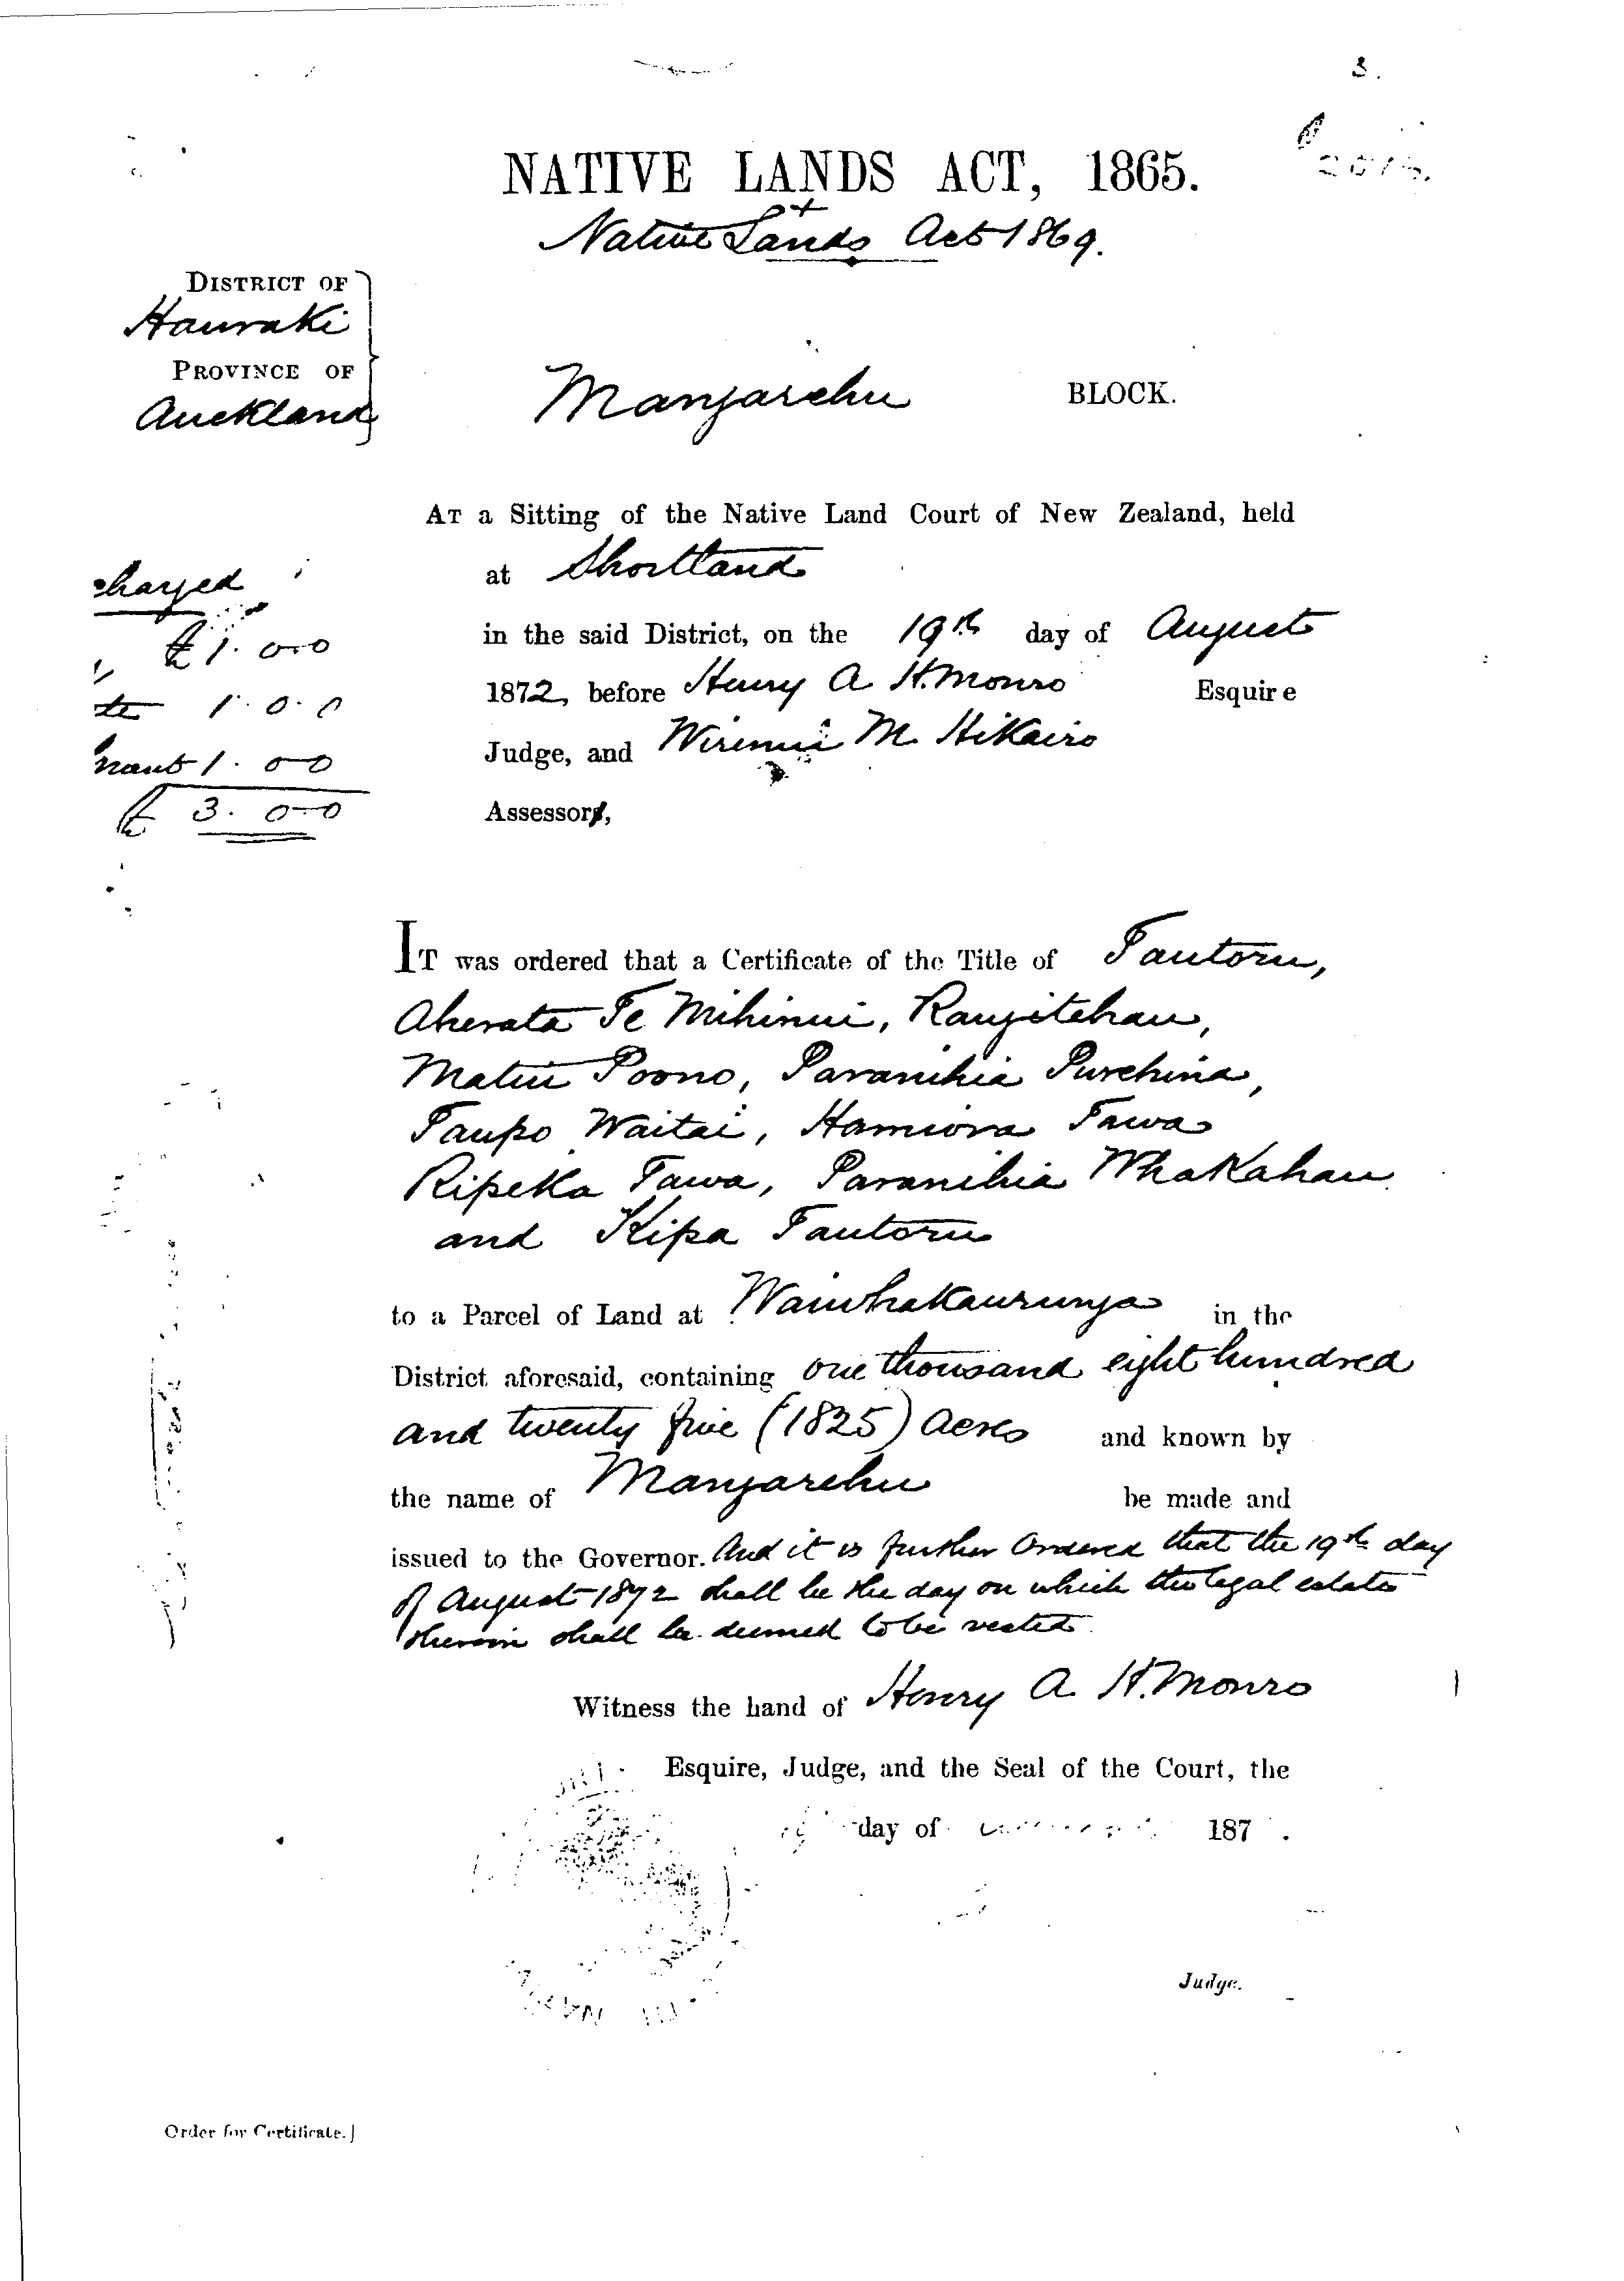 3.
NATIVE LANDS ACT, 1865.
&
Native Lands Act 1869.
DISTRICT OF
Hauraki
PROVINCE OF
Auckland
Mangarehu BLOCK.
AT a Sitting of the Native Land Court of New Zealand, held
at Shortland
in the said District, on the 19th day of August
1872, before Henry A. H. Monro Esquire
Judge, and Wiremu M. Hikairo
Assessor,
charged
£1.0.0
1.0.0
1.0.0
£3.0.0
IT was ordered that a Certificate of the Title of Tautoru,
Aherata Te Mihinui, Rangitehau,
Matiu Poono, Paranihia Purehina,
Taupo Waitai, Hamiora Tawa
Ripeka Tawa, Paranihia Whakahau
and Kipa Tautoru
to a Parcel of Land at Waiwhakaurunga in the
District aforesaid, containing one thousand eight hundred
and twenty five (1825) Acres and known by
the name of Mangarehu be made and
issued to the Governor. And it is further Ordered that the 19th day
of August 1872 shall be the day on which the legal estate
therein shall be deemed to be vested.
Witness the hand of Henry A. H. Monro
Esquire, Judge, and the Seal of the Court, the
day of 187 .
Judge.
Order for Certificate.]